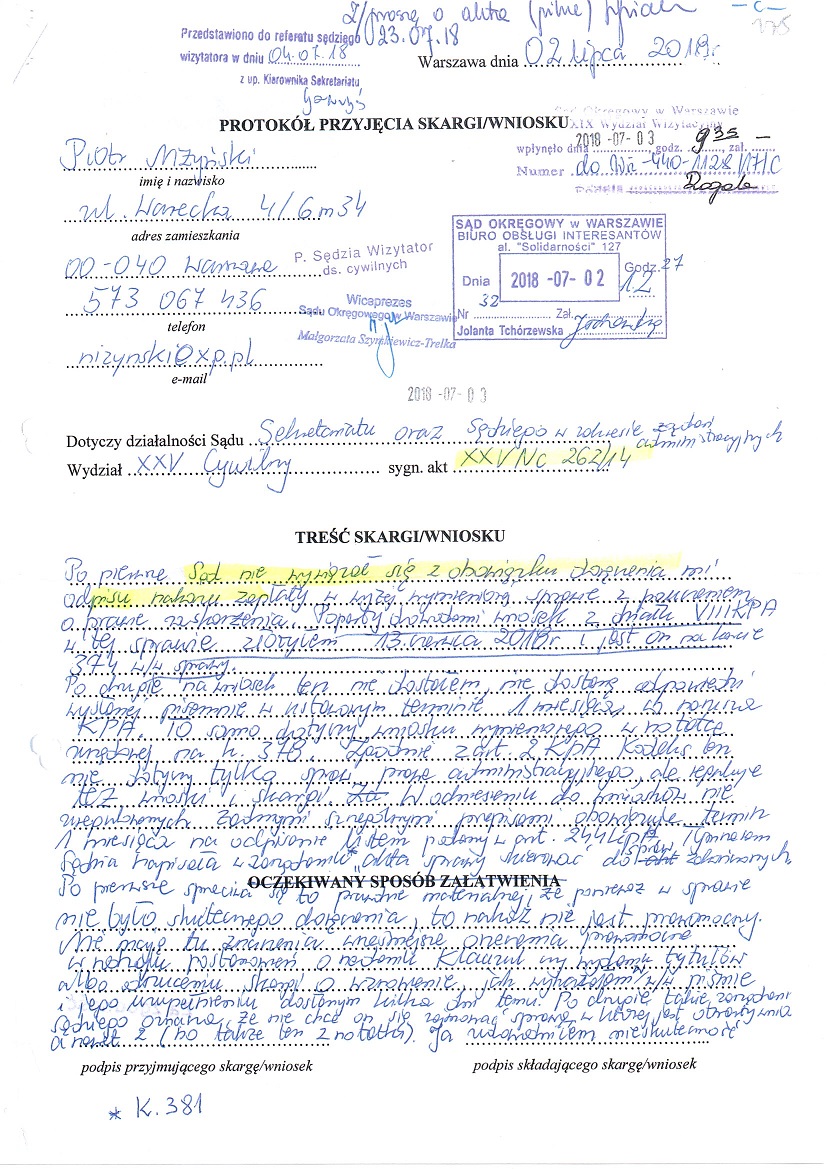 2/ proszę o akta (pilne)
23.07.18
- C -
175
Przedstawiono do referatu sędziego
wizytatora w dniu 04.07.18
z up. Kierownika Sekretariatu
Warszawa dnia 02 lipca 2018r.
PROTOKÓŁ PRZYJĘCIA SKARGI/WNIOSKU
Sąd Okręgowy w Warszawie
XIX Wydział Wizytacyjny
2018 -07- 03
wpłynęło dnia godz. 9 35 zał. -
Numer do Wa-440-1128/17/C
Rogala
Piotr Niżyński
imię i nazwisko
ul. Warecka 4/6 m 34
adres zamieszkania
00-040 Warszawa
573 067 436
telefon
nizynski@xp.pl
e-mail
P. Sędzia Wizytator
ds. cywilnych
Wiceprezes
Sądu Okręgowego w Warszawie
Małgorzata Szymkiewicz-Trelka
2018 -07- 03
SĄD OKRĘGOWY w WARSZAWIE
BIURO OBSŁUGI INTERESANTÓW
al. "Solidarności" 127
Dnia 2018 -07- 02 Godz. 12 27
32
Nr Zał.
Jolanta Tchórzewska
Dotyczy działalności Sądu Sekretariatu oraz Sędziego w zakresie zarządzeń administracyjnych
Wydział XXV Cywilny sygn. akt XXV Nc 262/14
TREŚĆ SKARGI/WNIOSKU
Po pierwsze Sąd nie wywiązał się z obowiązku doręczenia mi
odpisu nakazu zapłaty w wyżej wymienionej sprawie z pouczeniem
o prawie zaskarżenia. Poparty dowodami wniosek z działu VIII KPA
w tej sprawie złożyłem 13 czerwca 2018r. i jest on na karcie
374 w/w sprawy.
Po drugie na wniosek ten nie dostałem, nie dostanę odpowiedzi
wysłanej pisemnie w ustawowym terminie 1 miesiąca, co narusza
KPA. To samo dotyczy wniosku wymienionego w notatce
urzędowej na k. 378. Zgodnie z art. 2 KPA Kodeks ten
nie dotyczy tylko spraw prawa administracyjnego, ale reguluje
też wnioski i skargi. W odniesieniu do wniosków nie
uregulowanych żadnymi szczególnymi przepisami obowiązuje termin
1 miesiąca na odpisanie listem podany w art. 244 KPA. Tymczasem
Sędzia napisała w zarządzeniu* "akta sprawy skierować do spraw zakończonych
OCZEKIWANY SPOSÓB ZAŁATWIENIA
Po pierwsze sprzeciwia się to prawdzie materialnej, że ponieważ w sprawie
nie było skutecznego doręczenia, to nakaz nie jest prawomocny.
Nie mają tu znaczenia wcześniejsze orzeczenia prawomocne
w rodzaju postanowień o nadaniu klauzul czy wydaniu tytułów
albo odrzuceniu skargi o wznowienie, jak wykazałem w w/w piśmie
i jego uzupełnieniu dostanym kilka dni temu. Po drugie takie zarządzenie
sędziego oznacza, że nie chce on się zajmować sprawą, w której jest otrzymania
a nawet 2 (bo także ten z notatki). Ja udowodniłem nieskuteczność
podpis przyjmującego skargę/wniosek
podpis składającego skargę/wniosek
* K. 381